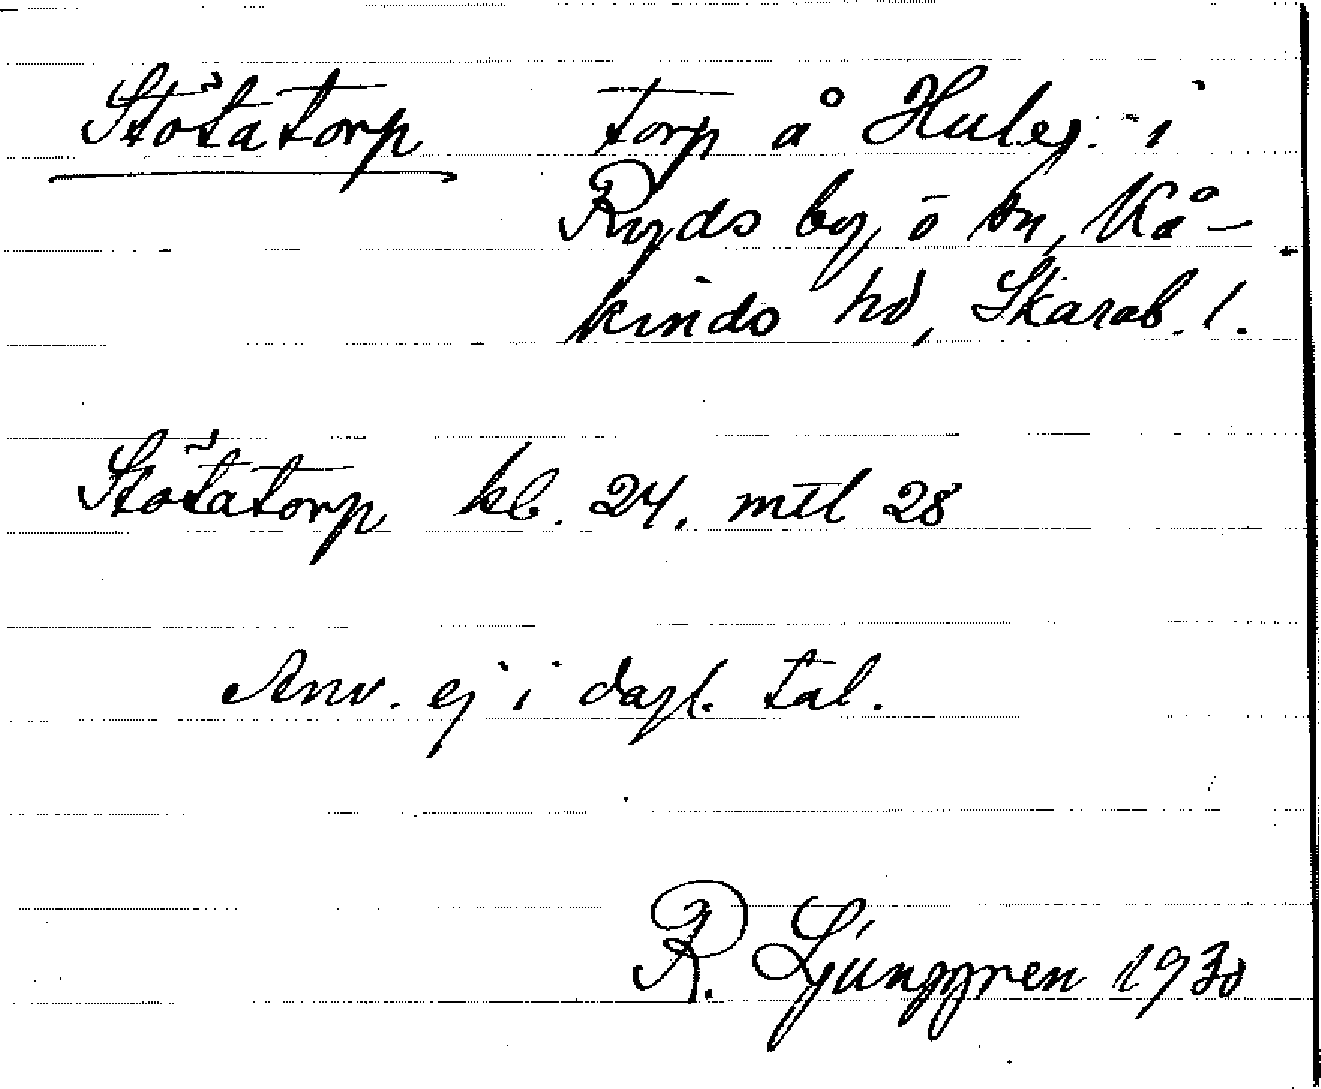 Stötatorp torp å Huleg. i
Ryds by o sn, Kå-
kinds hd, Skarab. l.
Stötatorp kl. 24. mtl 28
Anv. ej i dagl. tal.
R. Ljunggren 1930